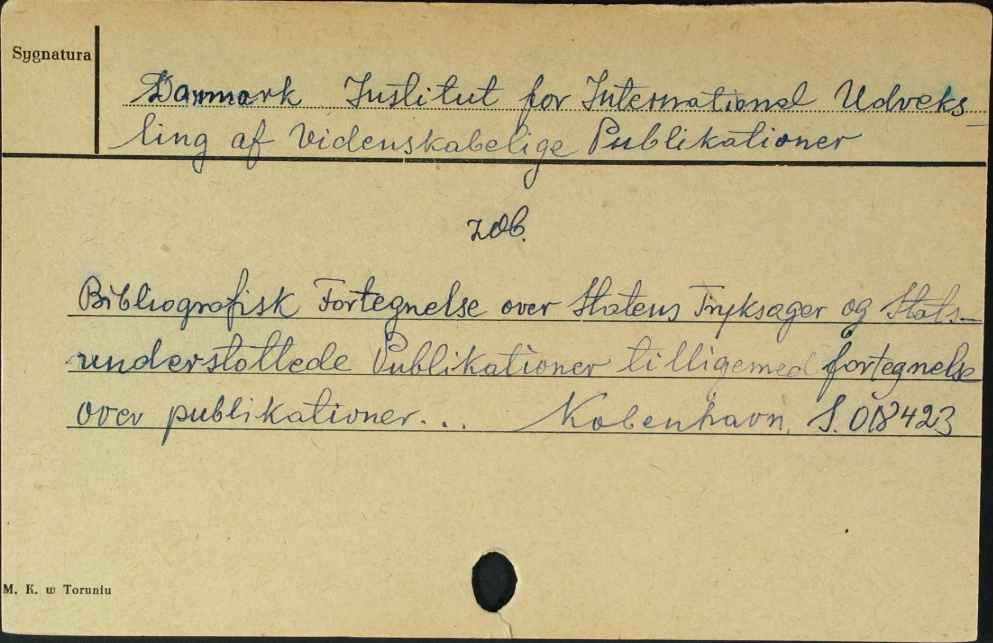 Sygnatura
Danmark Institut for International Udveks-
ling af Videnskabelige Publikationer
zob.
Bibliografisk Fortegnelse over Statens Tryksager og Stats-
understottede Publikationer tilligemed fortegnelse
over publikationer... Kobenhavn. S. 018423
M. K. w Toruniu